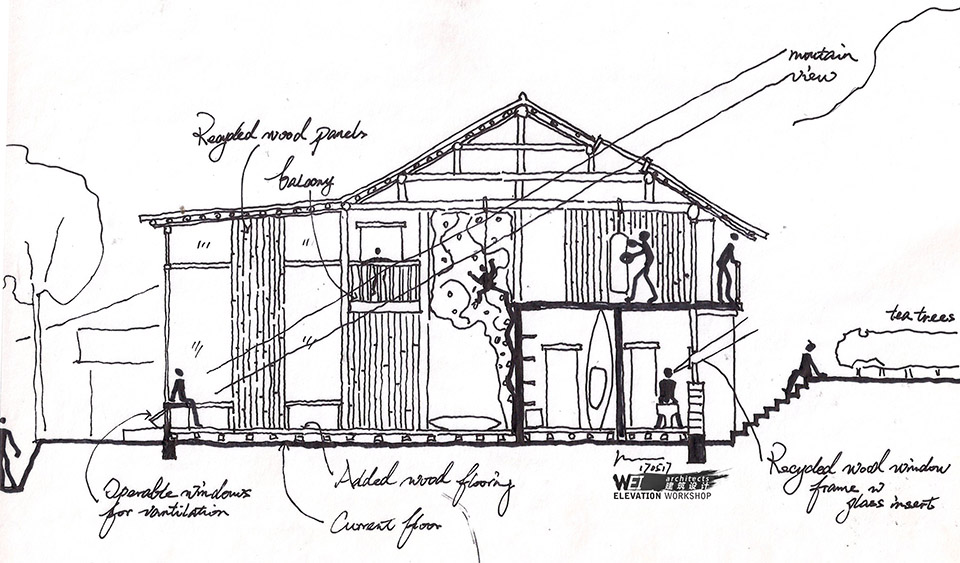 moutain
view
Recycled wood panels
balcony
tea trees
Operable windows
for vantilation
Added wood flooring
Current floor
170517
WEI architects
建筑设计
ELEVATION WORKSHOP
Recycled wood window
frame w
glass insert